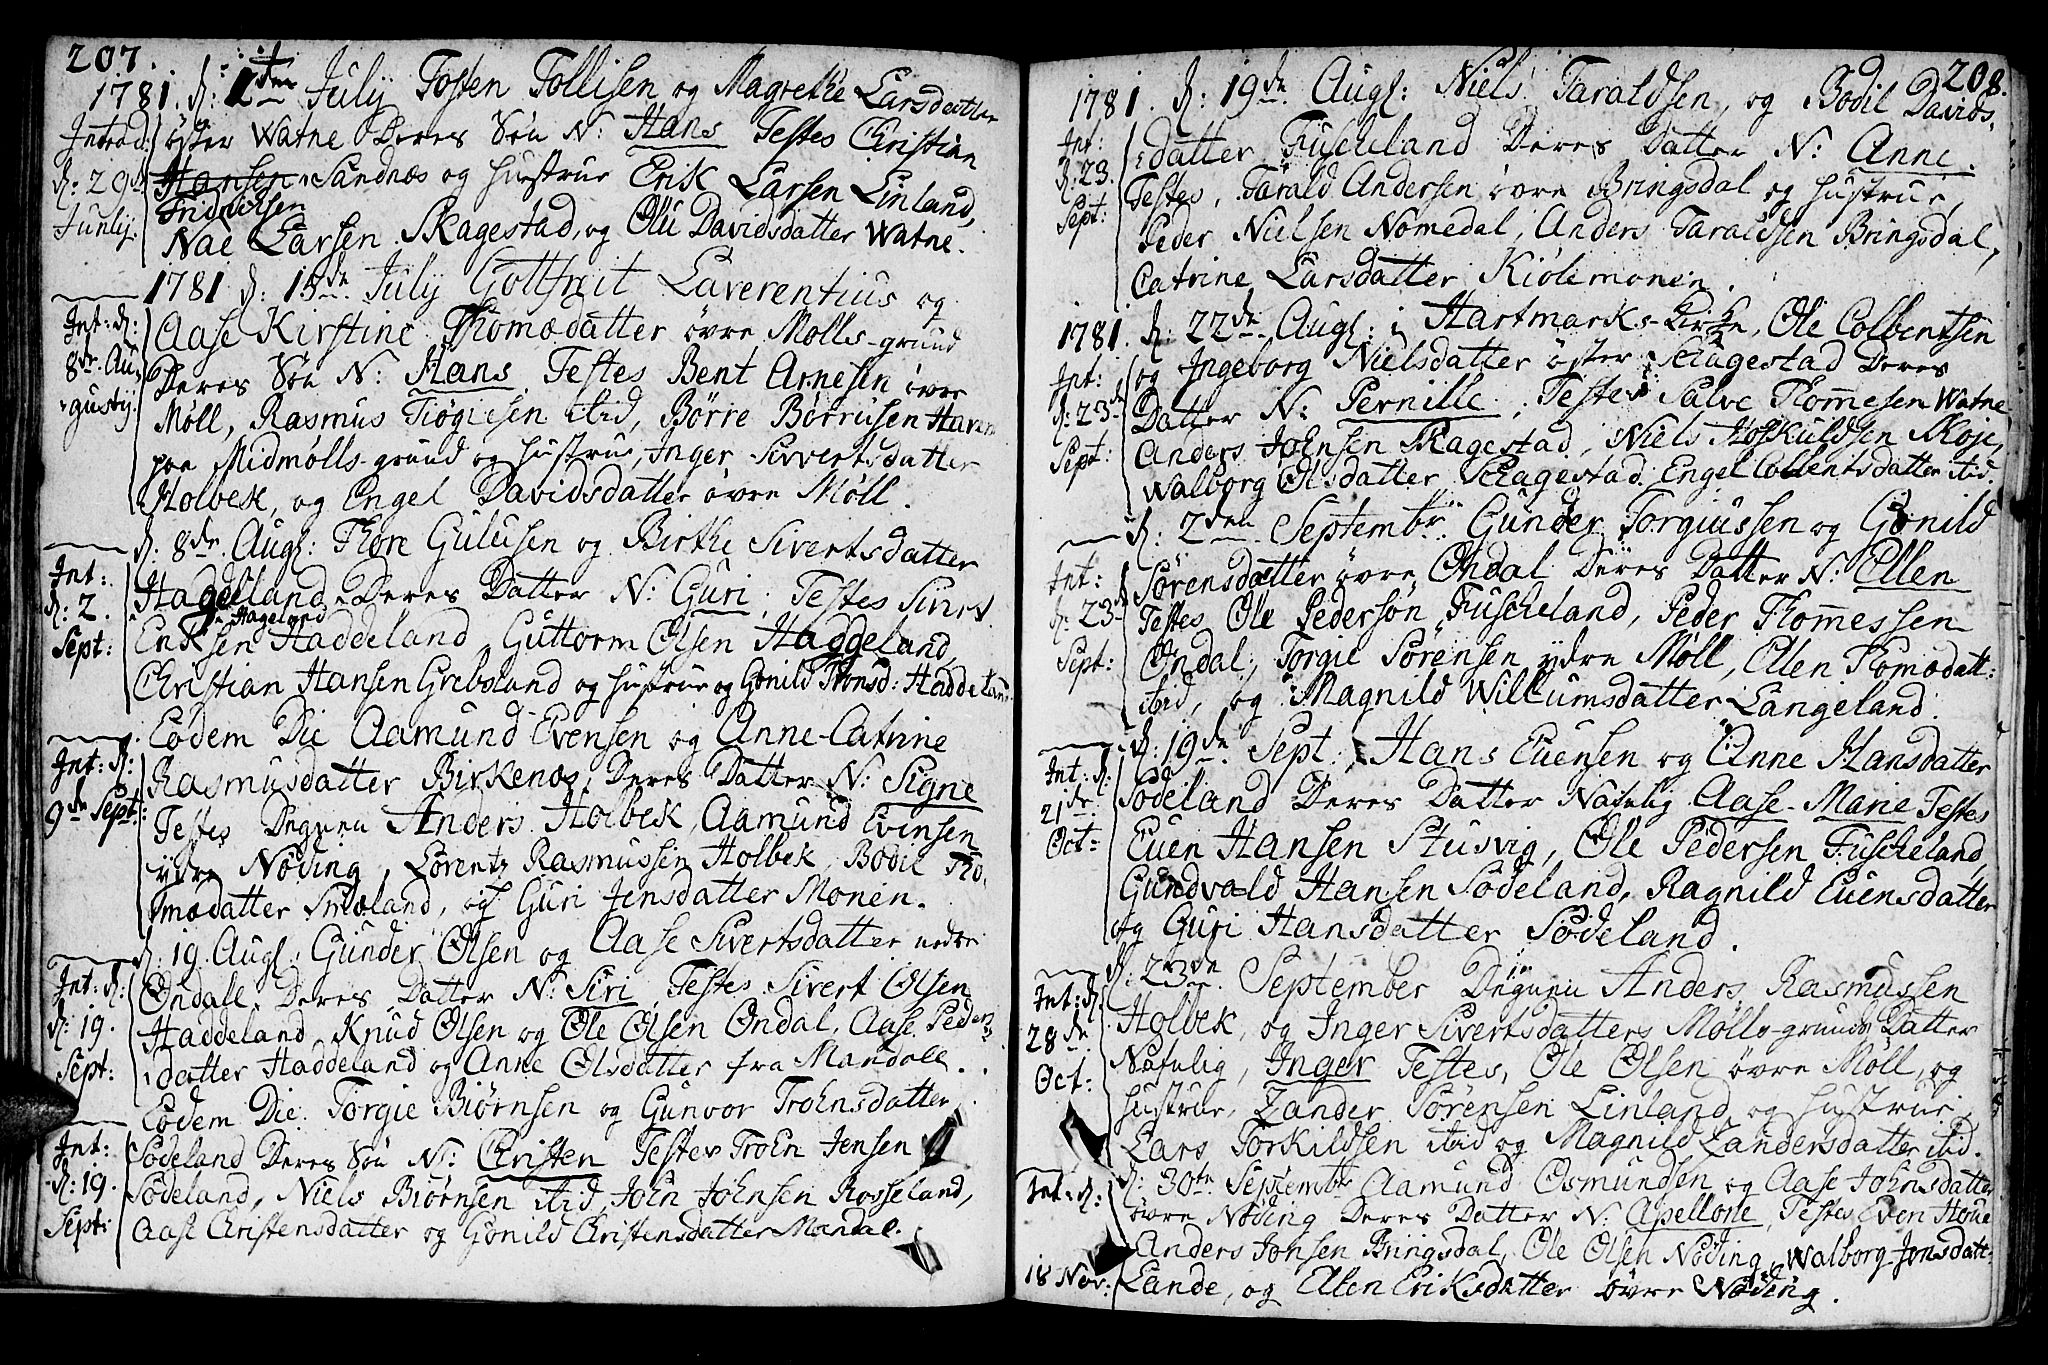 207.
1781. d: 1ten July Tosten Tollisen og Magrethe Larsdatter
Introd: öster Watne Deres Sön N: Hans Testes Christian
d: 29de Hansen Sandnæs og Hustrue Erik Larsen Linland,
Fridrichsen
Junij. Nae Larsen Skagestad, og Olu Davidsdatter Watne.
1781 d: 15de July Gottfreit Laverentius og
Int: d: Aase Kirstine Thomædatter övre Mölls-grund
8de Au- Deres Sön N: Hans Testes Bent Arnesen övre
gustij. Möll, Rasmus Tiøgiesen ibid, Börre Börrusen Haven
paa Midmölls-grund og Hustrue, Inger Sivvertsdatter
Holbek, og Engel Davidsdatter övre Möll.
d: 8de Augl: Thore Gulusen og Birthe Sivertsdatter
Int: Haddeland Deres Datter N: Guri, Testes Sivert
Hageland
d: 2. Eriksen Haddeland, Guttorm Olsen Haddeland,
Sept: Christian Hansen Grebsland og Hustrue og Gönild Tronsd: Haddeland
Eodem Die Aamund Evensen og Anne-Catrine
Int: d: Rasmusdatter Birkenæs, Deres Datter N: Signe
9de Sept: Testes Degnen Anders Holbek, Aamund Evensen
ydre Nöding, Lorentz Rasmussen Holbek, Bodil Tho-
mædatter Smeland, og Guri Jensdatter Monen.
d: 19 Augl: Gunder Olsen og Aase Sivertsdatter nedre
Int: d: Öndall, Deres Datter N: Siri, Testes Sivert Olsen
d: 19. Haddeland Knud Olsen og Ole Olsen Öndal, Aase Peders
Sept: datter Haddeland og Anne Olsdatter fra Mandall.
Eodem Die Torgie Biörnsen og Gunvor Trohnsdatter
Int: Södeland Deres Sön N: Christen Testes Troen Jensen
d: 19. Södeland, Niels Biörnsen ibid, John Johnsen Rosseland,
Sept: Aase Christensdatter og Gönild Christensdatter Mandal.
208.
1781. d: 19de Augl: Niels Taraldsen, og Bodil Davids-
Int: datter Fuscheland Deres Datter N: Anne.
d: 23. Testes, Tarald Andersen övre Bringsdal og Hustrue,
Sept: Peder Nielsen Nomedal, Anders Taraldsen Bringsdal,
Catrine Larsdatter Kiölemonen.
1781. d: 22de Augl: i Hartmarks-Kirke, Ole Colbentsen
Int: og Ingeborg Nielsdatter öster Skagestad Deres
d: 23de Datter N: Pernille, Testes Salve Thom̄esen Watne
Sept: Anders Johnsen Skagestad, Niels Hoskuldsen Skoje,
Walborg Olsdatter Skagestad, Engel Collentsdatter ibid.
d: 2den Septembr: Gunder Torgiussen og Gönild
Int: Sörensdatter övre Öndal, Deres Datter N: Ellen
d: 23de Testes Ole Pedersön Fuscheland, Peder Thom̄essen
Sept: Öndal, Torgie Sörensen ydre Möll, Ellen Thomædatt:
ibid, og Magnild Willumsdatter Langeland.
d: 19de Sept: Hans Euensen og Anne Hansdatter
Int: d: Södeland Deres Datter Nafnlig Aase-Marie Testes
21de Euen Hansen Stusvig, Ole Pedersen Fuscheland,
Oct: Gundvald Hansen Södeland, Ragnild Euensdatter
og Guri Hansdatter Södeland.
d: 23de September Degnen Anders Rasmussen
Int: d: Holbek, og Inger Sivertsdatters Mölls-grunds Datter
28de Nafnlig, Inger Testes, Ole Olsen övre Möll, og
Oct: Hustrue, Zander Sörensen Linland og Hustrue,
Lars Torkildsen ibid og Magnild Zandersdatter ibid.
d: 30te Septembr Aamund Osmundsen og Aase Johnsdatter
Int: d: övre Nöding Deres Datter N: Apellone, Testes Even Houe
Anders Jonsen Bringsdal, Ole Olsen Nöding, Walborg Jonsdatt:
18 Nov: Lande, og Ellen Eriksdatter övre Nöding.